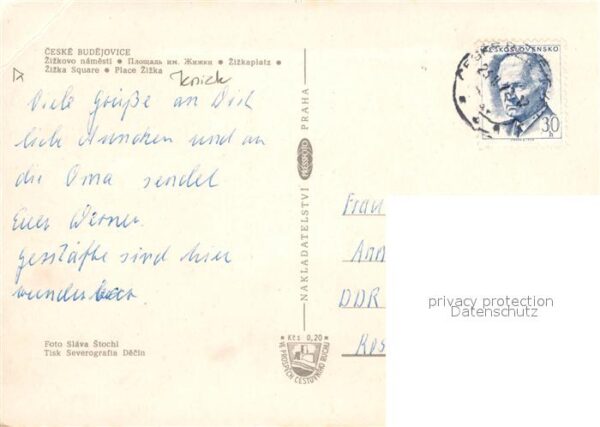 ČESKÉ BUDĚJOVICE
Žižkovo náměstí • Площадь им. Жижки • Žižkaplatz •
Žižka Square • Place Žižka
Viele Grüße an Dich
und an
die Oma sendet
Euer Werner.
sind hier
wunderbar.
Foto Sláva Štochl
Tisk Severografia Děčín
NAKLADATELSTVÍ PRESSFOTO PRAHA
Kčs 0,20
VE PROSPĚCH CESTOVNÍHO RUCHU
ČESKOSLOVENSKO
30
h
Frau
Ann
DDR
Ros
privacy protection
Datenschutz